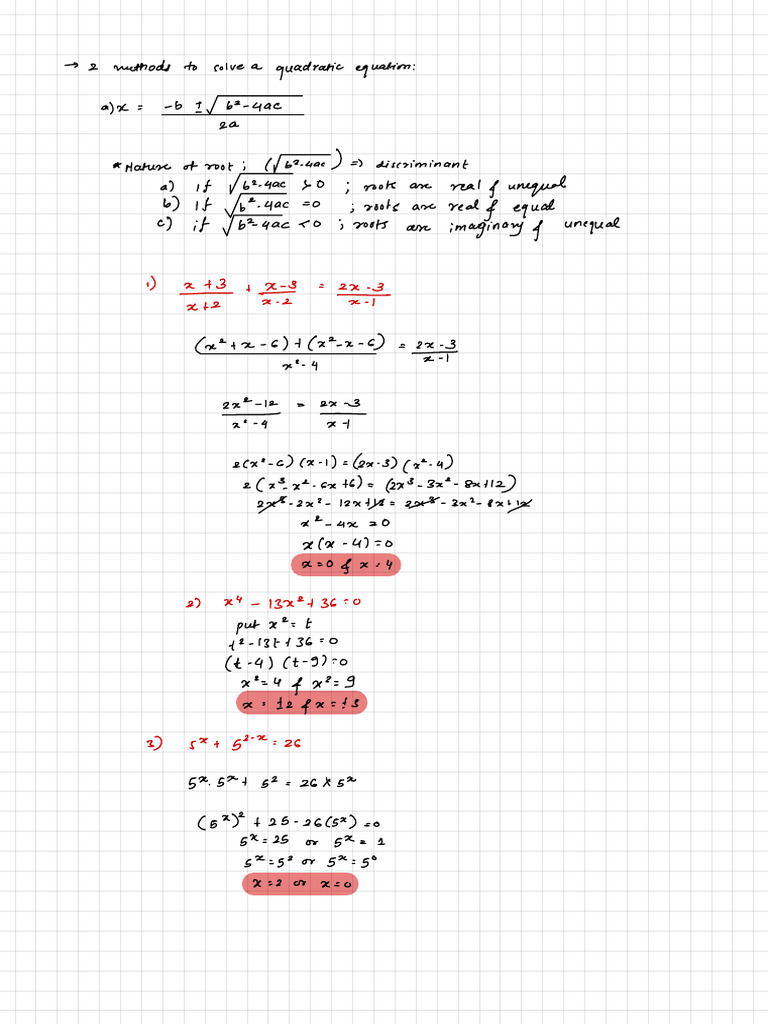 → 2 methods to solve a quadratic equation:
a) x = (-b ± √(b²-4ac)) / 2a
* Nature of root ; (√b²-4ac) => discriminant
a) if √b²-4ac > 0 ; roots are real & unequal
b) if √b²-4ac = 0 ; roots are real & equal
c) if √b²-4ac < 0 ; roots are imaginary & unequal
1) (x+3)/(x+2) + (x-3)/(x-2) = (2x-3)/(x-1)
((x²+x-6)+(x²-x-6))/(x²-4) = (2x-3)/(x-1)
(2x²-12)/(x²-4) = (2x-3)/(x-1)
2(x²-6)(x-1)=(2x-3)(x²-4)
2(x³-x²-6x+6)=(2x³-3x²-8x+12)
2x³-2x²-12x+12=2x³-3x²-8x+12
x²-4x=0
x(x-4)=0
x=0 & x=4
2) x⁴-13x²+36=0
put x²=t
t²-13t+36=0
(t-4)(t-9)=0
x²=4 & x²=9
x=±2 & x=±3
3) 5ˣ+5²⁻ˣ=26
5ˣ.5ˣ+5²=26×5ˣ
(5ˣ)²+25-26(5ˣ)=0
5ˣ=25 or 5ˣ=1
5ˣ=5² or 5ˣ=5⁰
x=2 or x=0